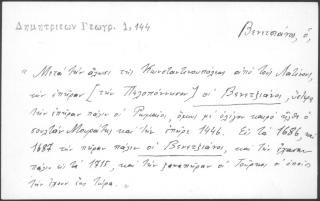 Δημητριεων Γεωγρ. 1,144
Βενετσιάνος, ὁ,
"Μετὰ τὴν ἅλωσι τῆς Κωνσταντινουπόλεως ἀπὸ τοὺς Λατίνους,
τὴν ἐπῆραν [τὴν Πελοπόννησον] οἱ Βενετζιάνοι, ὕστερα
τὴν ἐπῆραν πάλιν οἱ Ρωμαῖοι, ὅμως μὲ ὀλίγον καιρὸ ἦλθε ὁ
σουλτὰν Μουράτης καὶ τὴν ἐπῆρε 1446. Εἰς τὰ 1686, καὶ
1687 τὴν πῆραν πάλιν οἱ Βενετζιάνοι, καὶ τὴν ἔχασαν
πάλιν εἰς τὰ 1715, καὶ τὴν ξαναπῆραν οἱ Τοῦρκοι οἱ ὁποῖοι
τὴν ἔχουν ἕως τώρα."